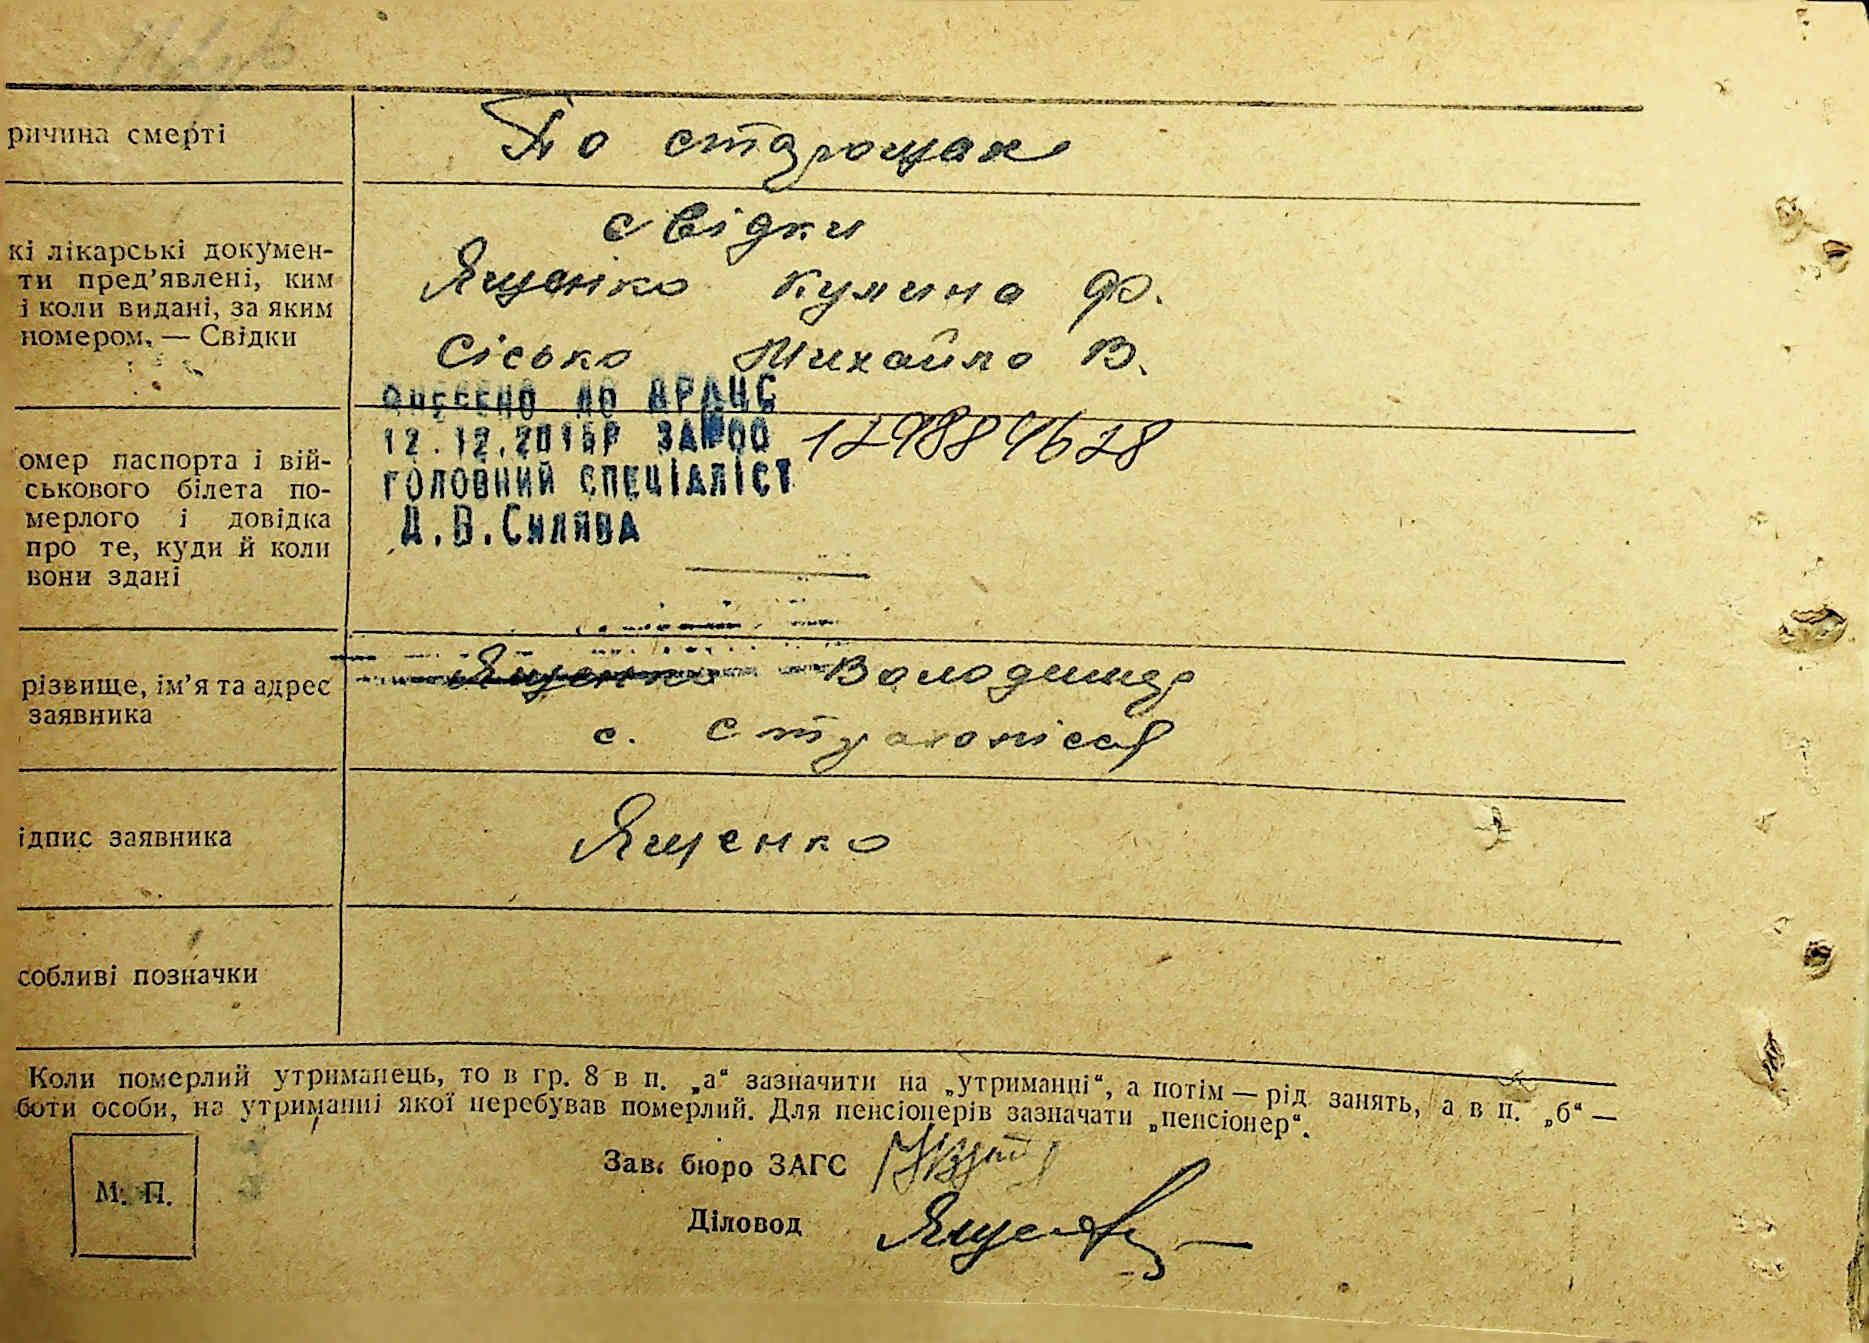 ричина смерті
По старощах
кі лікарські докумен-
ти пред’явлені, ким
і коли видані, за яким
номером. — Свідки
свідки
Ященко Кулина Ф.
Сісько Михайло В.
ВНЕСЕНО ДО ДРАЦС
12.12.2015Р ЗА №00 1798846 28
ГОЛОВНИЙ СПЕЦІАЛІСТ
Д.В.Силява
омер паспорта і вій-
ськового білета по-
мерлого і довідка
про те, куди й коли
вони здані
різвище, ім’я та адрес
заявника
Ященко Володимир
с. Страхолісся
ідпис заявника
Ященко
собливі позначки
Коли померлий утриманець, то в гр. 8 в п. „а“ зазначити на „утриманні“, а потім — рід занять, а в п. „б“ —
боти особи, на утриманні якої перебував померлий. Для пенсіонерів зазначати „пенсіонер“.
Зав. бюро ЗАГС
М. П.
Діловод